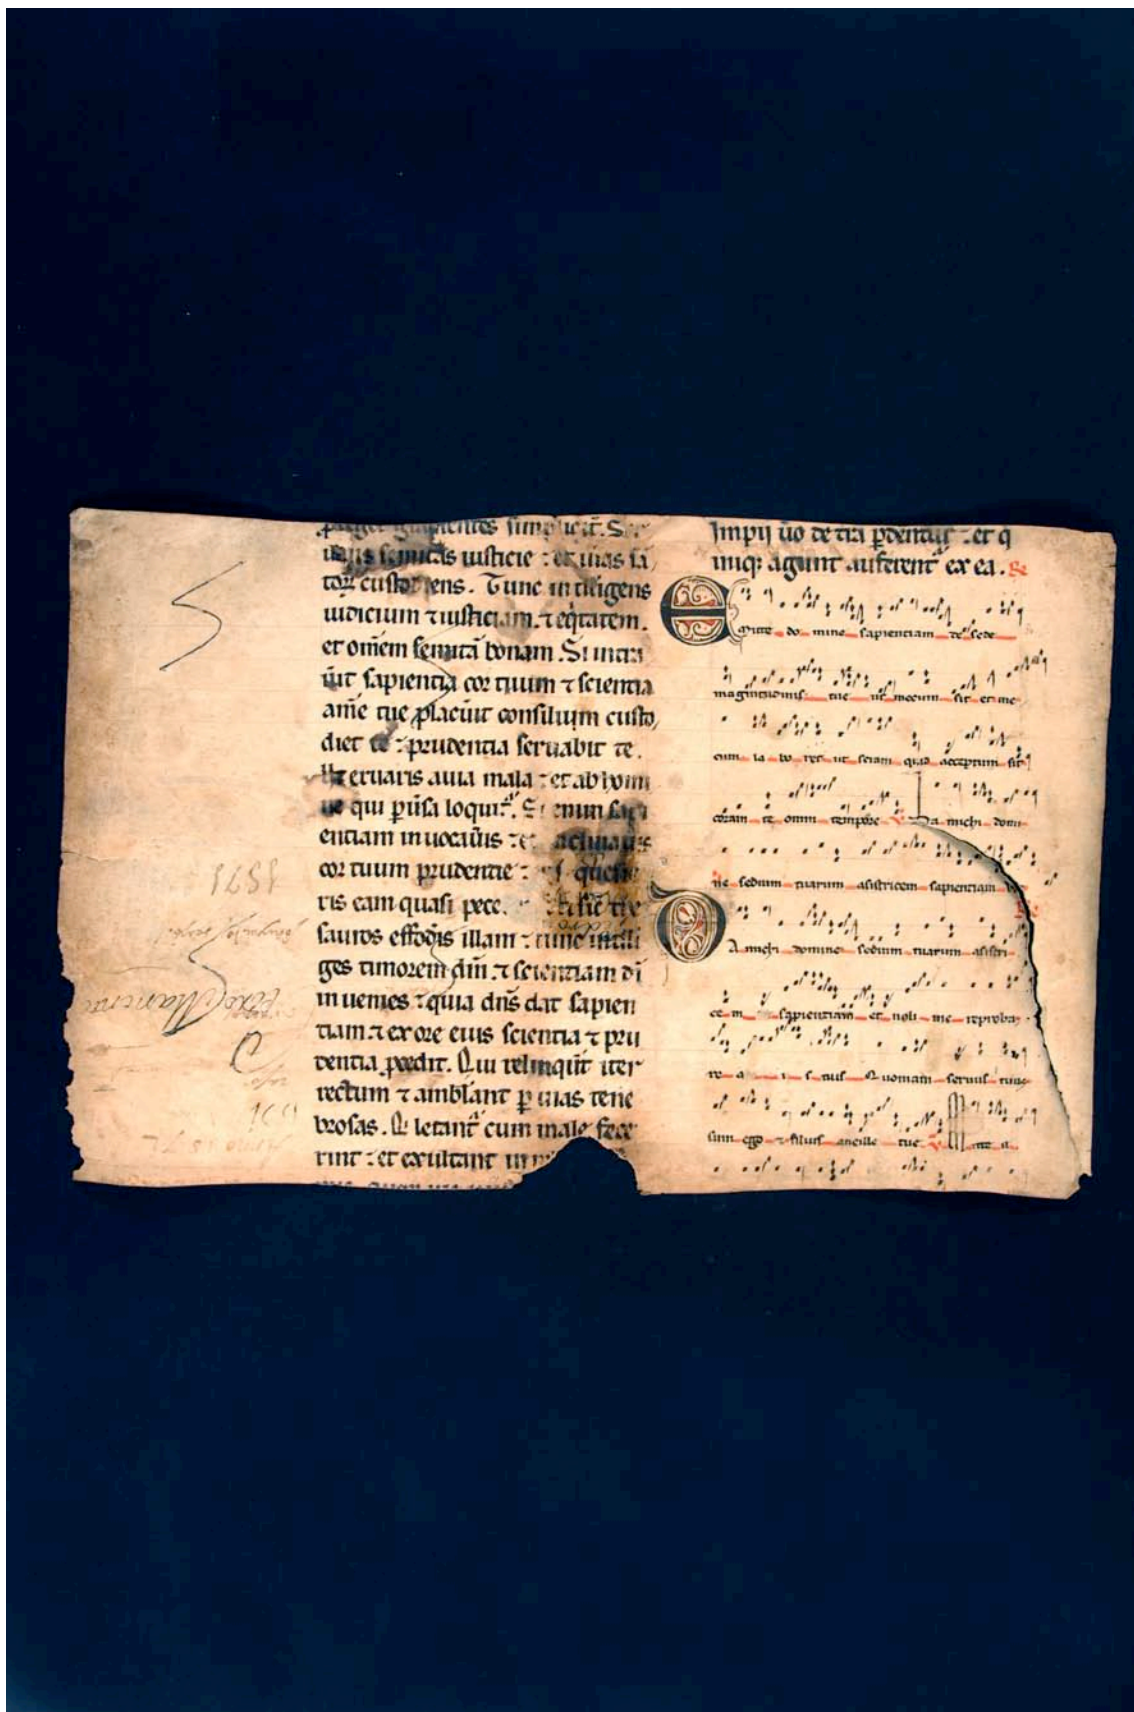 simplicit̄.
iusticie : et uias sā
Tunc intelliges
iudicium ⁊ iusticiam. ⁊ eq̇tatem.
et om̄em semitā bonam. Si intra
ūit sapientia cor tuum ⁊ scientia
am̄e tue placūit consilium custo
diet te : prudentia seruabit te.
eruaris a uia mala : et ab homi
ne qui p̄ūsa loquit᷑. Si enim sapi
entiam inuocaūis :
cor tuum prudentie :
ris eam quasi pece.
sauros effod̄is illam : tunc intelli
ges timorem dn̄i ⁊ scientiam dī
inuenies : quia dn̄s dat sapien
tiam. ⁊ ex ore eius scientia ⁊ pru
dentia p̱cedit. Qui relinqūt iter
rectum ⁊ amblāt p̱ uias tene
brosas. Q̇ letant᷑ cum male fece
rint : et exultant in
Impij ūo de t̄ra p̱dentur : et q
iniq̱ agunt auferent᷑ ex ea. R̄
Emitte domine sapientiam de sede
magnitudinis tue ut mecum sit et me
cum la bo ret ut sciam quid acceptum sit
coram te omni tempore V Da michi domi
ne sedium tuarum asistricem sapientiam
DA michi domine sedium tuarum asistri
cem sapientiam et noli me reproba
re a i s tuis Quoniam seruus tuus
sum ego ⁊ filius ancille tue V Mitte il
1571